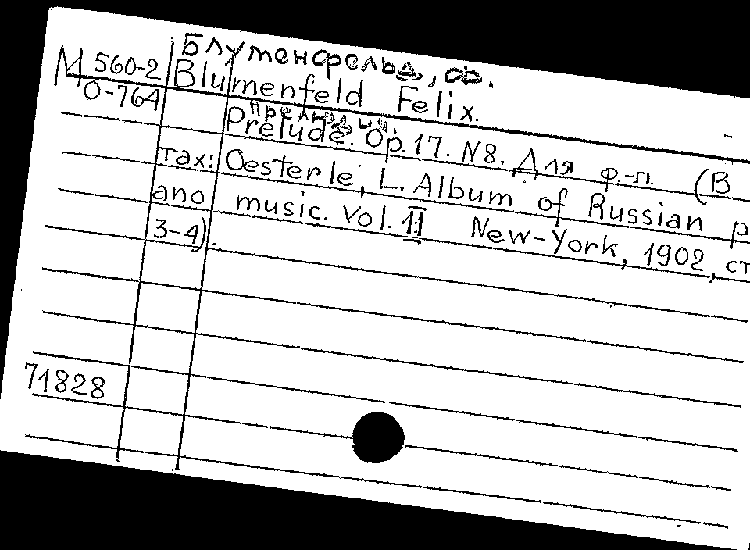 Блуменфельд, Ф.
М 560-2
О-764
Blumenfeld Felix.
Прелюдия.
Prélude. Op.17. N8. Для ф.-п. (В
тах: Oesterle, L. Album of Russian p
ano music. Vol. II New-York, 1902, ст
3-4).
71828